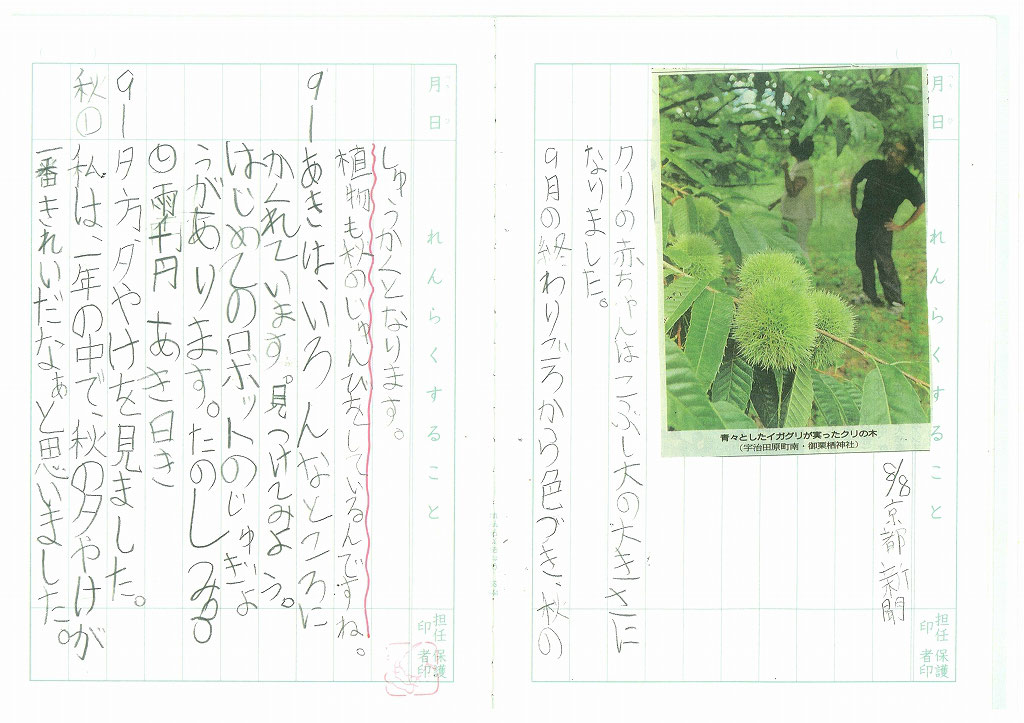 月 日
れんらくすること
担任印
保護者印
青々としたイガグリが実ったクリの木
(宇治田原町南・御栗栖神社)
8/8 京都新聞
クリの赤ちゃんはこぶし大の大きさに
なりました。
9月の終わりごろから色づき、秋の
月 日
れんらくすること
担任印
保護者印
しゅうかくとなります。
植物も秋のじゅんびをしているんですね。
9ー あきは、いろんなところに
かくれています。見つけてみよう。
はじめてのロボットのじゅぎょ
うがあります。たのしみ
雨千円 あき日き
9ー 夕方、夕やけを見ました。
秋① 私は、一年の中で、秋の夕やけが
一番きれいだなぁと思いました。